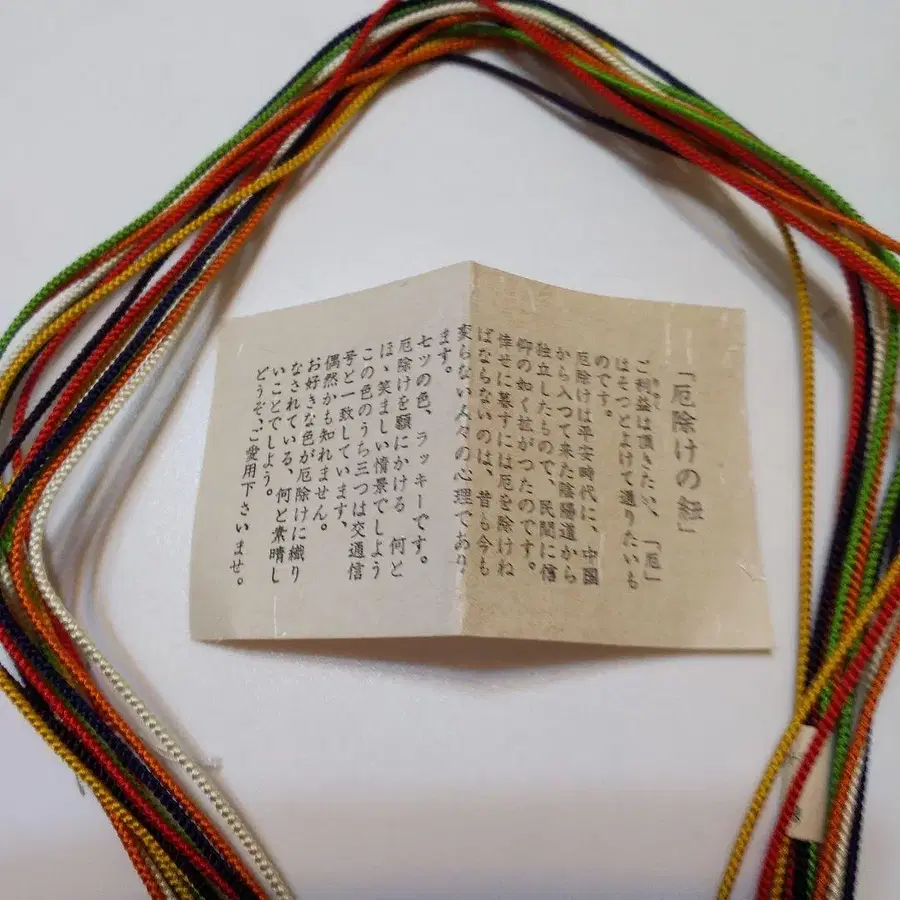 「厄除けの紐」
ご利益は頂きたい、「厄」
はそつとよけて通りたいも
のです。
厄除けは平安時代に、中国
から入つて来た陰陽道から
独立したもので、民間に信
仰の如く拡がつたのです。
倖せに暮すには厄を除けね
ばならないのは、昔も今も
変らない人々の心理であり
ます。
七ツの色、ラッキーです。
厄除けを願にかける 何と
ほゝ笑ましい情景でしよう
この色のうち三つは交通信
号と一致しています、
偶然かも知れません。
お好きな色が厄除けに織り
なされている、何と素晴し
いことでしよう。
どうぞ、ご愛用下さいませ。